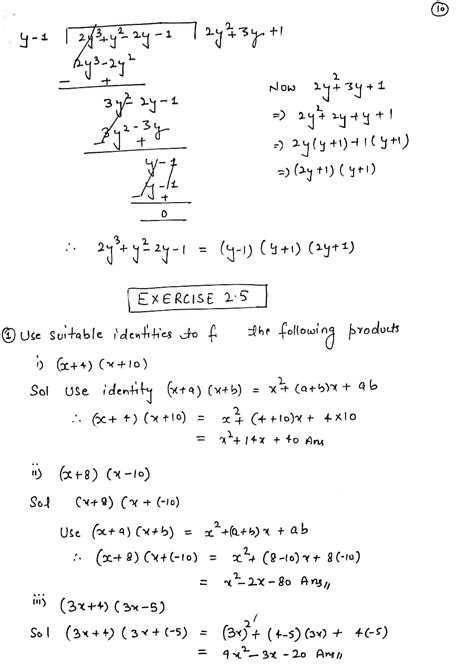 10
y-1 ) 2y³+y²-2y-1 | 2y²+3y+1
2y³-2y²
- +
3y²-2y-1
3y²-3y
- +
y-1
y-1
- +
0
Now 2y²+3y+1
=> 2y²+2y+y+1
=> 2y(y+1)+1(y+1)
=> (2y+1)(y+1)
∴ 2y³+y²-2y-1 = (y-1)(y+1)(2y+1)
EXERCISE 2.5
① Use suitable identities to f the following products
i) (x+4)(x+10)
Sol Use identity (x+a)(x+b) = x²+(a+b)x+ab
∴ (x+4)(x+10) = x²+(4+10)x+4×10
= x²+14x+40 Ans
ii) (x+8)(x-10)
Sol (x+8)(x+(-10)
Use (x+a)(x+b) = x²+(a+b)x+ab
∴ (x+8)(x+(-10) = x²+(8-10)x+8(-10)
= x²-2x-80 Ans,,
iii) (3x+4)(3x-5)
Sol (3x+4)(3x+(-5) = (3x)²+(4-5)(3x)+4(-5)
= 9x²-3x-20 Ans,,